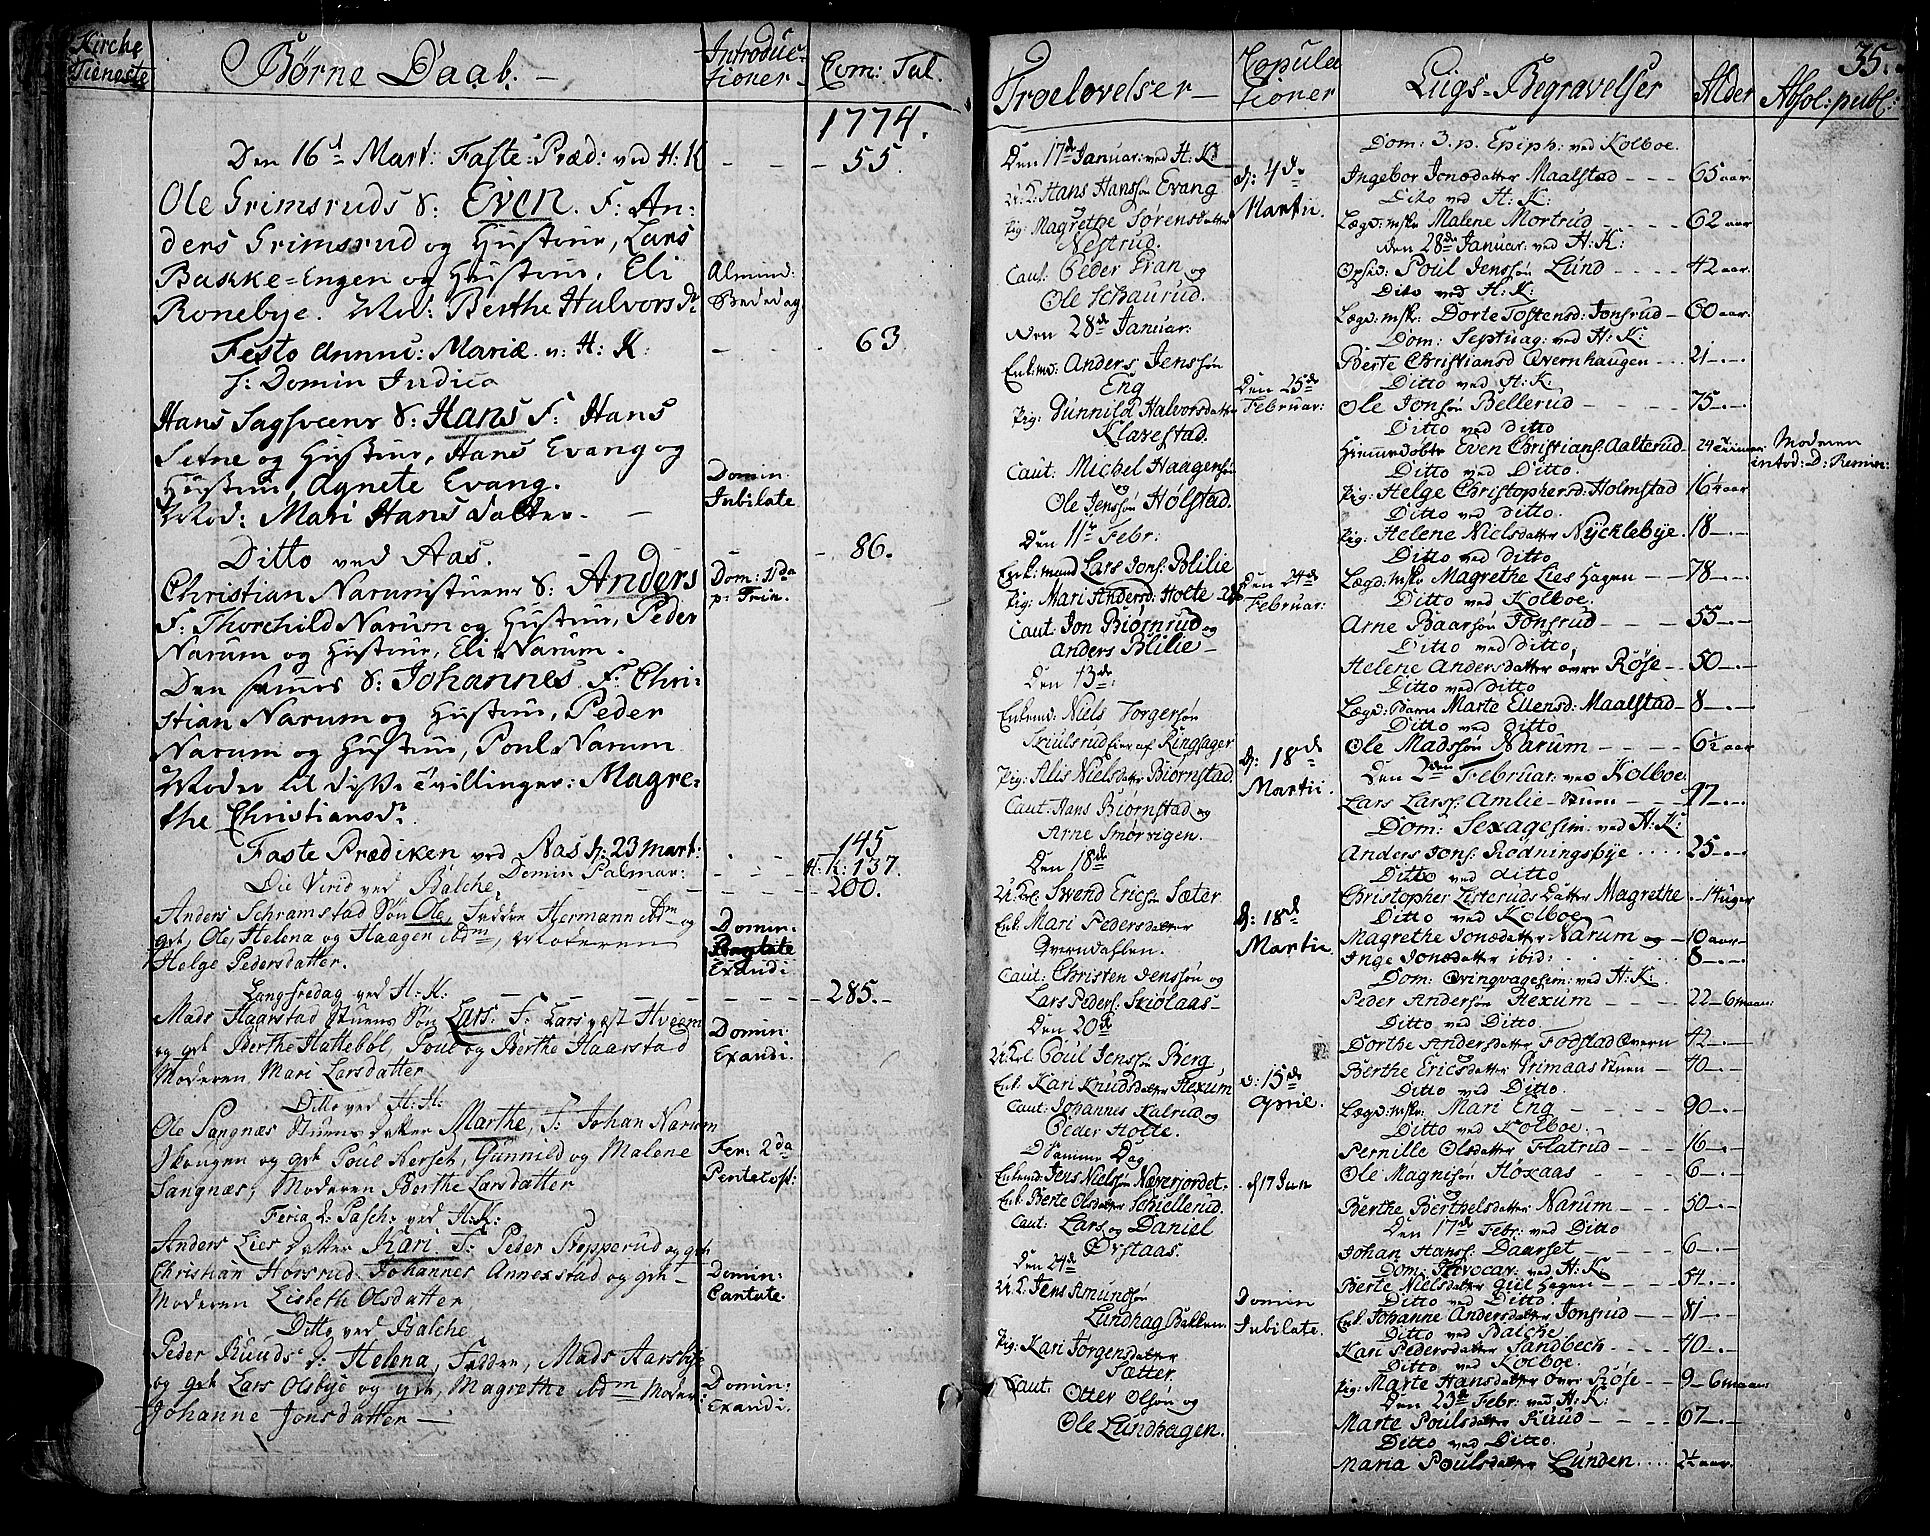 Kirche
Tieneste
Børne Daab. —
Introduc-
tioner
Com: Tal.
1774.
Den 16d Mart: Faste-Præd: ved H: K - - - 55.
Ole Grimsruds S: Even. F: An-
ders Grimsrud og Hustrue, Lars
Bakke-Engen og Hustrue, Eli
Ronebye. Mod: Berthe Halvorsdr
Almind:
Bededag
Festo Annu: Mariæ v: H: K: - - 63.
s: Domin Judica
Hans Sagsveens S: Hans F: Hans
Setne og Hustrue, Hans Evang og
Hustrue, Agnete Evang.
Mod: Mari Hansdatter. —
Domin:
Jubilate
Ditto ved Aas. - 86.
Christian Narumstuens S: Anders
F: Thorchild Narum og Hustrue, Peder
Narum og Hustrue, Eli Narum.
Dom: 11da
p: Trin.
Den sammes S: Johannes. F: Chri-
stian Narum og Hustrue, Peder
Narum og Hustrue, Poul Narum
Moder til disse Tvillinger: Magre-
the Christiansdr.
Faste Prædiken ved Aas d: 23 Mart: - - 145
Domin Palmar: - - - H: K: 137.
Die Virid ved Balche - - - 200.
Anders Schramstad Søn Ole, Faddere Hermann ibdm og
gvk, Ole, Helena og Haagen ibdm, Moderen
Helge Pedersdatter.
Domin:
Exaudi
Langfredag ved H: K: - - - 285.
Mads Haarstad Stuens Søn Lars: F: Lars vest Hveem
og gvk Berthe Hattebøl, Poul og Berthe Haarstad
Moderen Mari Larsdatter
Domin:
Exaudi.
Ditto ved H: K:
Ole Sangnæs Stuens Datter Marthe, F: Johan Narum
Skougen og gvk Poul Herset, Gunnild og Malene
Sangnæs, Moderen Berthe Larsdatter
Fer: 2da
Pentecost:
Feria 2. Pasch: ved H: K:
Anders Lies Datter Kari F: Peder Stepperud og gvk
Christian Horsrud Johannes Annexstad og gvk —
Moderen Lisbeth Olsdatter
Domin:
Cantate.
Ditto ved Balche
Peder Ruuds D: Helena, Faddere, Mads Aarsby
og gvk Lars Olsbye og gvk, Magrethe ibdm Moder:
Johanne Jonsdatter —
Domin:
Exaudi.
Troelovelser —
Copula
tioner
Den 17de Januar: ved H. K:
U: K: Hans Hanssøn Evang
Pig: Magrethe Sørensdatter
Nestrud.
Caut: Peder Fran og
Ole Schaurud.
d: 4de
Martii.
Den 28de Januar:
Enkmd: Anders Jenssøn
Eng
Pig: Gunnild Halvorsdatter
Klarestad.
Caut: Michel Haagensøn
og
Ole Jenssøn Hølstad.
Den 25de
Februar:
Den 11te Febr:
Enk:mand Lars Jons: Blilie
Pig: Mari Andersd: Holte
Caut: Jon Biørnrud og
Anders Blilie —
Den 24de
Februar:
Den 13de:
Enkemd: Niels Torgersøn
Skiulsrud her af Ringsager
Pig: Alis Nielsdatter Biørnstad
Caut: Hans Biørnstad og
Arne Smørvigen.
d: 18de
Martii.
Den 18de
U: Kl: Swend Ericsøn Sæter
Enk: Mari Pedersdatter
Overndahlen.
Caut: Christen Jenssøn og
Lars Peders: Skiolaas —
d: 18de
Martii
Den 20de
U: Kl: Poul Jenssøn Berg
Enk: Kari Knudsdatter Hexum
Caut: Johannes Kalrud og
Peder Holte.
d: 15de
April.
D Samme Dag
Enkemd: Jens Nielsøn Næverjordet.
Enk: Berte Olsdatter Schiellerud
Caut: Lars og Daniel
Ørstaas.
d 17 Jun
Den 24de
U: K: Jens Amundsøn
Lundhag Bakken.
Pig: Kari Jørgensdatter
Sætter.
Caut: Otter Olsøn og
Ole Lundhagen.
Domin
Jubilate.
Liigs-Begravelser
Alder
Absol: publ:
35.
Dom: 3. p. Epiph: ved Kolboe.
Ingebor Jonsdatter Maalstad - - - 65 aar
Dito ved H: K:
Lægd: mskr Malene Mortrud - - - 62 aar
den 28de Januar: ved H: K:
Opsid: Poul Jenssøn Lund - - - 42 aar.
Dito ved H: K:
Lægd: mskr Dorte Tostensd: Jonsrud - 60 aar.
Dom: Septuag: ved H: K:
Berte Christiansd Overnhaugen - - - 21 —
Ditto ved H: K:
Ole Jonsøn Bellerud - - - 75 —
Ditto ved ditto
Hiemmedøbte Even Christians: Aalterud - 24 Timer
Moderen
introd: D: Remin:
Ditto ved Ditto.
Pig: Helge Christophersd: Holmstad 16½ aar
Ditto ved ditto.
Pig: Helene Nielsdatter Nycklebye. 18 —
Ditto ved ditto
Lægd: mskr Magrethe Lies Hagen - - 78 —
Ditto ved Kolboe.
Arne Baarsøn Jonsrud - - 55 —
Ditto ved ditto,
Helene Andersdatter øvre Røse - - 50 —
Ditto ved ditto
Lægd: Barn Marte Ellensd: Maalstad - 8 —
Ditto ved ditto
Ole Madssøn Narum - - - 6½ aar
Den 2den Februar: ved Kolboe.
Lars Larss: Amlie-Stuen - - 77 —
Dom: Sexagesim: ved H: K:
Anders Jons: Rødningsbye . . . 25 —
Ditto ved ditto
Christopher Listeruds Datter Magrethe . 14 uger
Ditto ved Kolboe
Magrethe Jonsdatter Narum og - 10 aar —
Inge Jonsdatter ibid: . . . 8 —
Dom: Qvinqvagesim: ved H: K:
Peder Andersøn Hexum - - - 22 — 6 maan:
Ditto ved Ditto
Dorthe Andersdatter Fodstad Overn - 42 —
Berthe Ericsdatter Grimaas Stuen - 70 —
Ditto ved Ditto.
Lægd: mskr: Mari Eng - - - 90 —
Ditto ved Kolboe.
Pernille Olsdatter Flatrud - - 16 —
Ole Magnisøn Hoxaas - - - 6 —
Berthe Berthelsdatter Narum - - 50 —
Den 17de Febr: ved Ditto
Johan Hanss: Daarset - - - 6 —
Dom: Invocav: ved H: K
Berte Nielsdatter Giil Hagen - - - 54 —
Ditto ved Ditto.
Enk: Johanne Andersdatter Jonsrud - - 81 —
Ditto ved Balche
Kari Pedersdatter Sandbech - - - 70 —
Ditto ved Kolboe
Pig: Marte Hansdatter Øvre Røse - - 9 — 6 maan:
Den 23de Febr: ved H: K:
Marte Poulsdatter Ruud - - - 67 —
Ditto ved Ditto.
Maria Poulsdatter Lunden . . . 2½ aar.